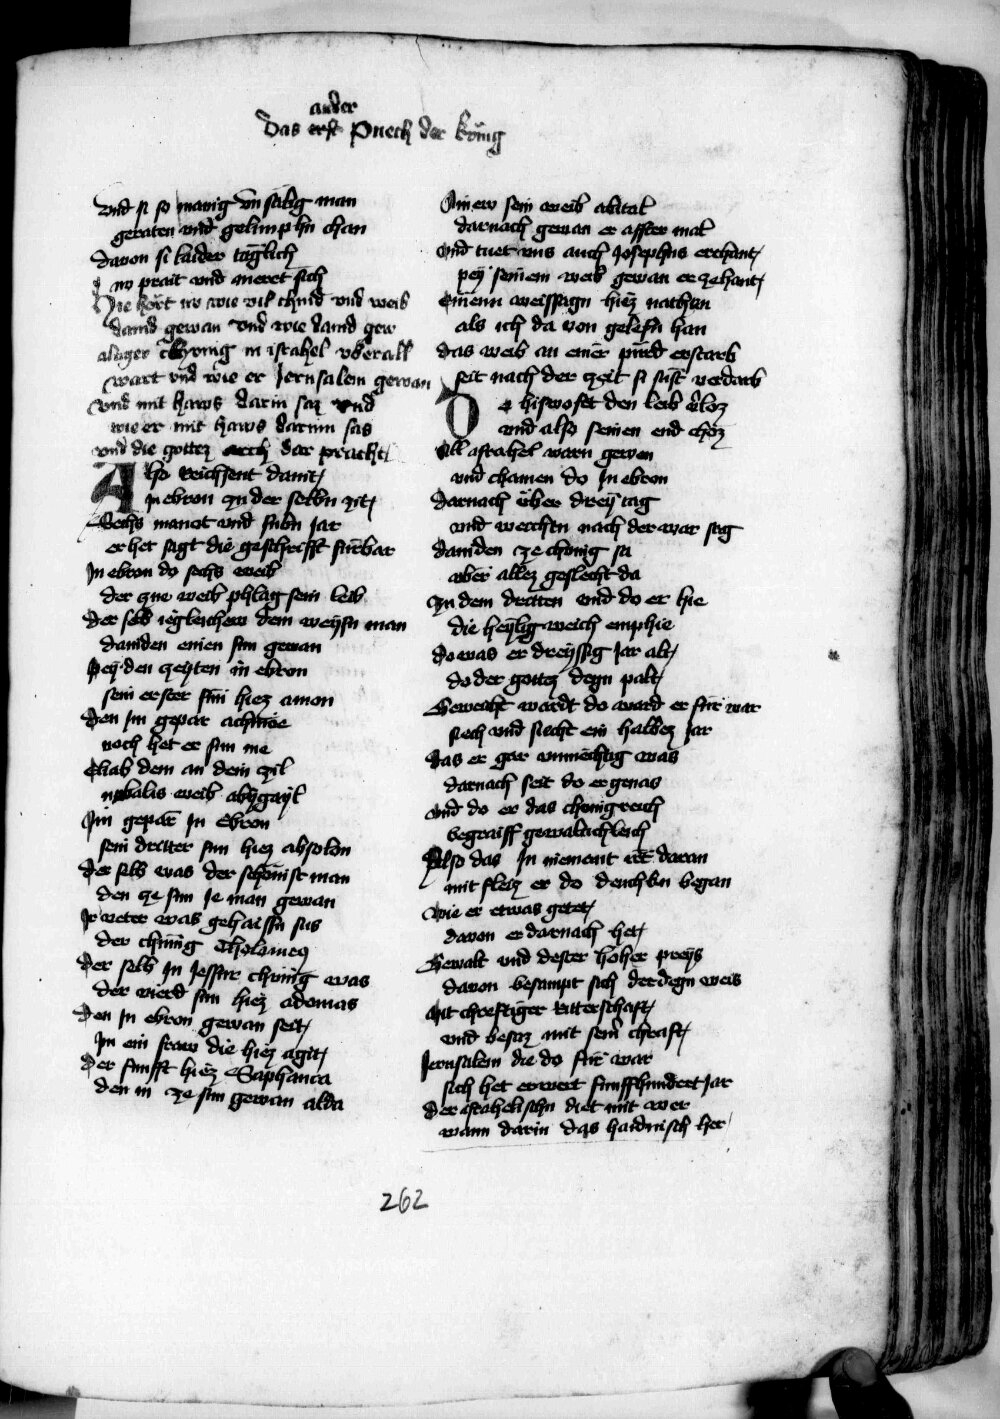 ander
Das erst Puech der König
Und si so manig vn sälig man
geraten vnd gelimphn chan
dauon si laider täglich
no prait vnd meret sich
Hie hört no wie vil chind vnd weib
dauid gewan vnd wie dauid gew
alliger chönig in israhel vberall
wart vnd wie er Jerusalem gewan
vnd mit haws darin saz vnd
wie er mit haws darinn sas
vnd die gottez arch dar pracht
Also reichsent damit
In ebron zu der selbn zit
Sechs manot vnd sibn jar
er het sagt die geschrifft fürbar
In ebron do sechs weib
der zue weib phlag sein leib
Der selb iegleichew dem weysn man
dauiden einen sun gewan
Pey den zeyten in ebron
sein erster sun hiez amon
den im gepar achinoe
noch het er sun me
Eliab dem an dem zil
nabalis weib abygayl
Im gepar in Ebron
sein dritter sun hiez absolon
Der selb was der schönist man
den ze sun ie man gewan
Ir veter was gehaissn sus
der chünig Tholomeus
Der selb in Jessur chünig was
der vierd sun hiez adonias
Den in ebron gewan seit
Im ein fraw die hiez agit
Der funfft hiez Saphanca
den in ze sun gewan alda
Ainew sein weib abital
darnach gewan er affter mal
Und tuet vns auch Josephus erchant
pey seinem weib gewan er zehant
Einenn weissagn hiez nathan
als ich da von gelesn han
Das weib an einer pürd erstarb
seit nach der zeit si sust verdarb
Do hisboset den leib verloz
vnd also seinen end choz
All israhel warn gewen
vnd chamen do In ebron
Darnach über drey tag
vnd weichtn nach der war sag
Dauiden ze chönig sa
vber allez geslecht da
Zu dem dritten vnd do er hie
die heylig weich emphie
Do was er dreyssig Jar alt
do der gottez degn palt
Geweicht wardt do ward er für war
siech vnd siecht ein halbez Jar
Das er gar vnmechtig was
darnach seit do er genas
Und do er das chönigreich
begraiff gewaltichleich
Also das In niement irrt daran
mit fleiz er do denchkn began
Wie er etwas getet
dauon er darnach het
Gewalt vnd dester hoher preys
dauon besampt sich der degn weis
Mit chreftiger ritterschaft
vnd besaz mit seiner chraft
Jerusalem die do für war
sich het erwert funffhundert Jar
Der israhelischn diet mit wer
wann darin das haidnisch her
262